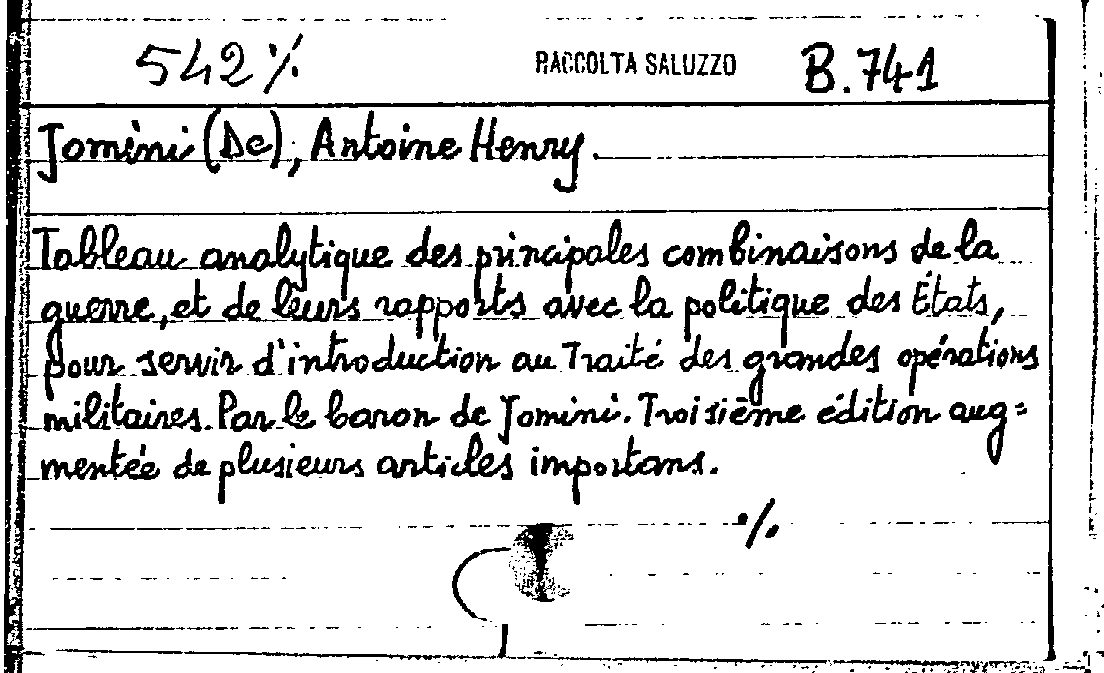 542 ./. RACCOLTA SALUZZO B.741
Jomini (De), Antoine Henry.
Tableau analytique des principales combinaisons de la
guerre, et de leurs rapports avec la politique des États,
pour servir d'introduction au Traité des grandes opérations
militaires. Par le baron de Jomini. Troisième édition aug=
mentée de plusieurs articles importans.
./.